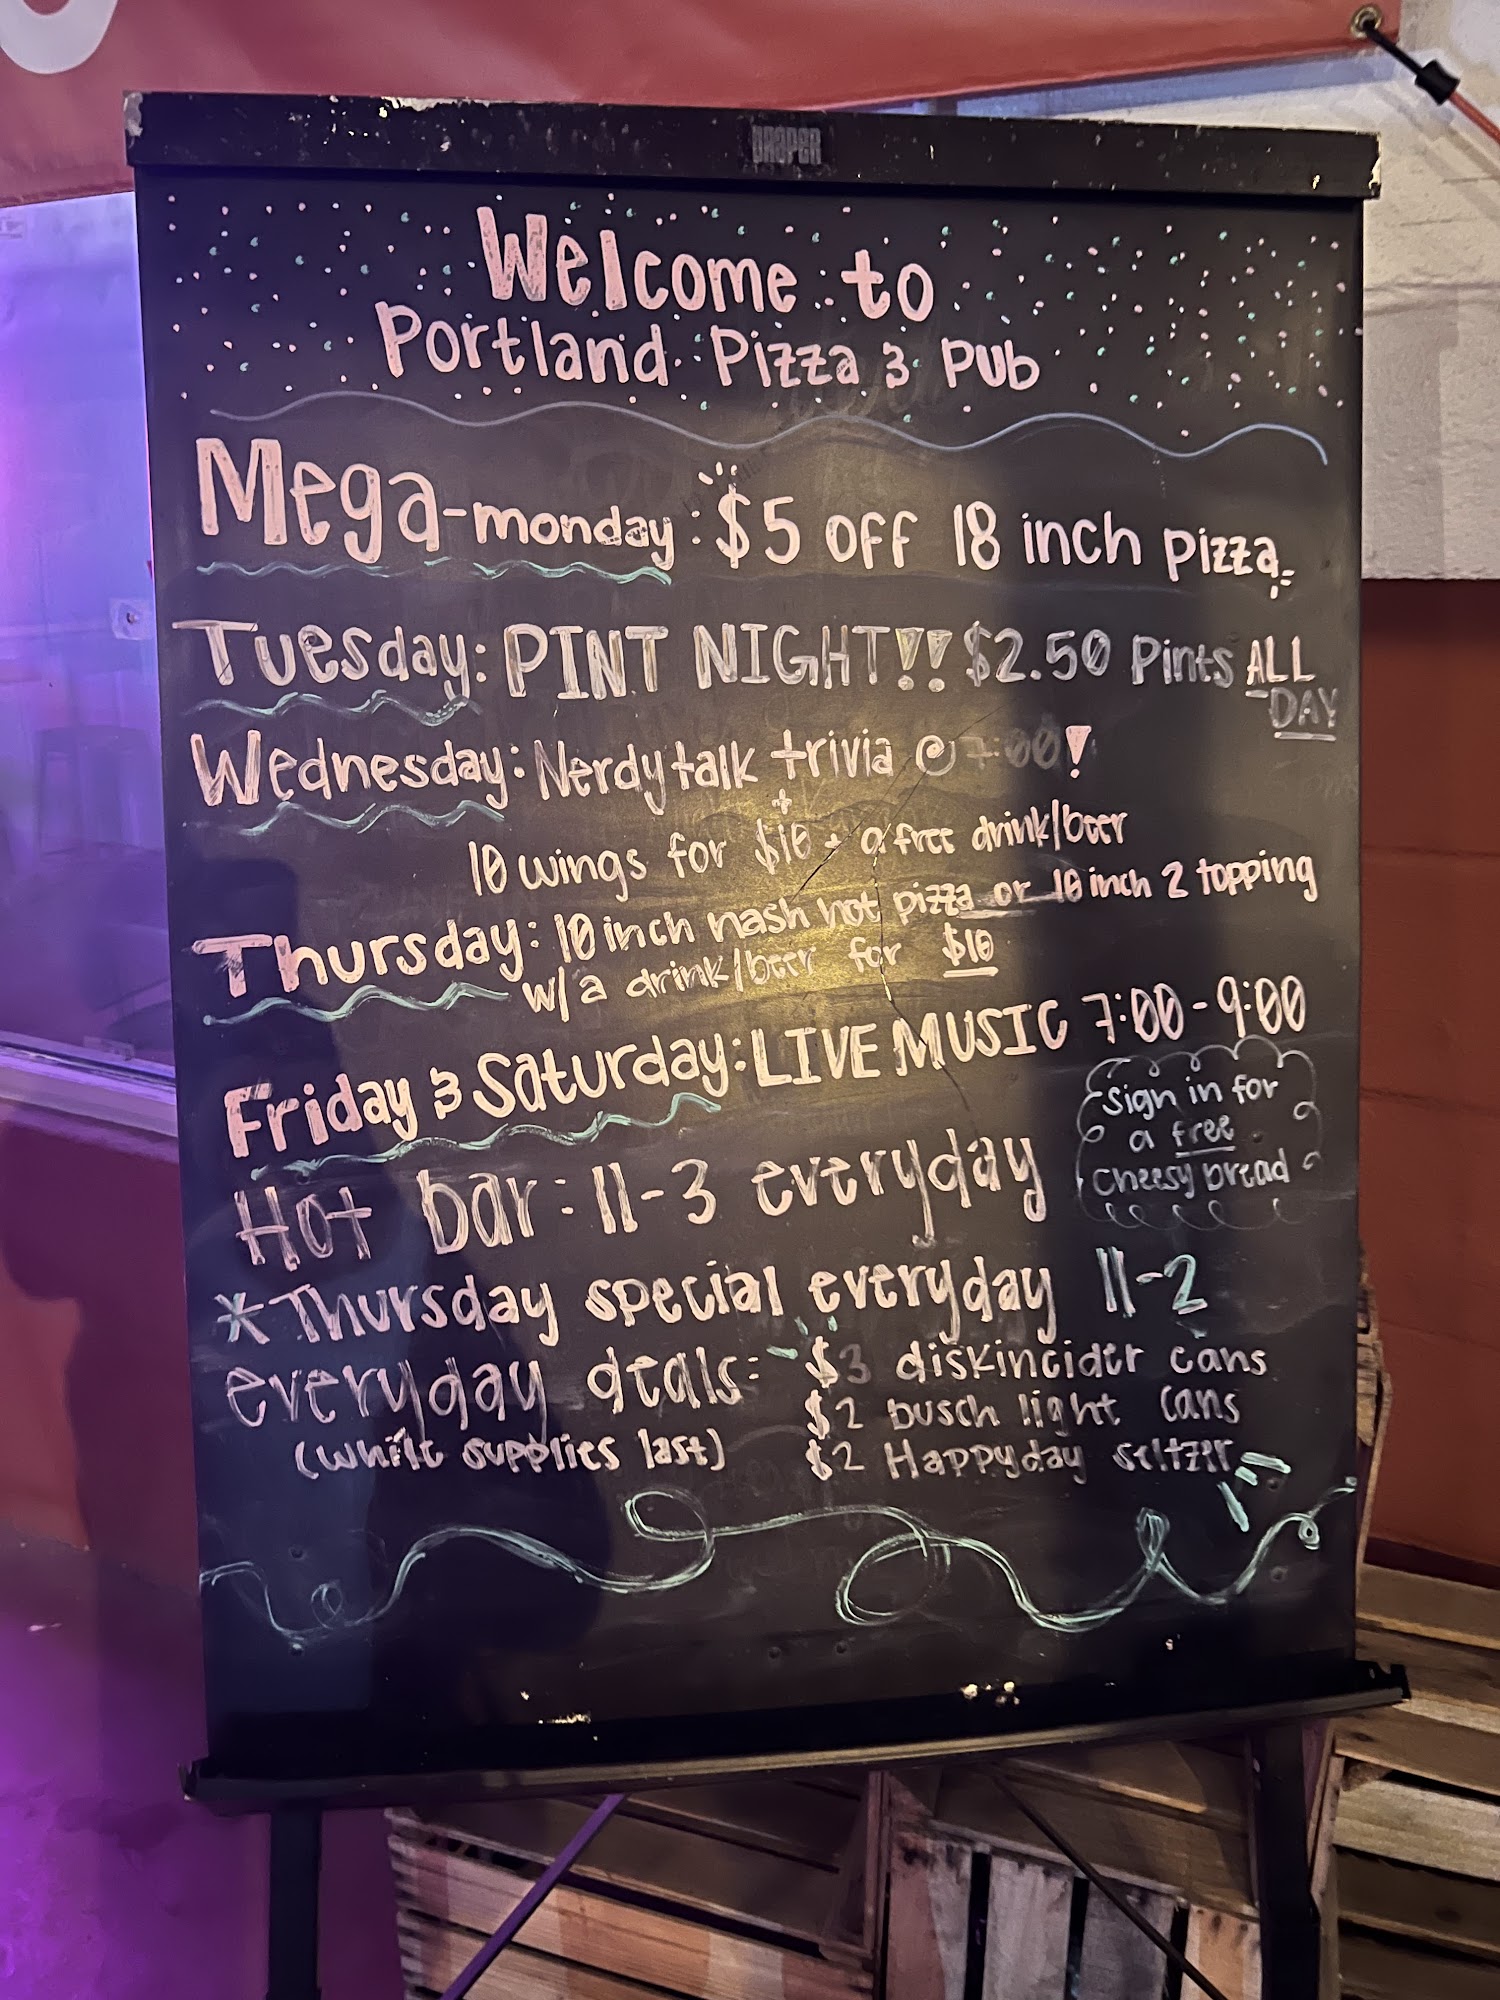 DRAPER
Welcome to
Portland Pizza & Pub
Mega-monday: $5 OFF 18 inch pizza
Tuesday: PINT NIGHT!! $2.50 Pints ALL
DAY
Wednesday: Nerdy talk trivia @ 7:00!
+
10 wings for $10 + a free drink/beer
Thursday: 10 inch nash hot pizza or 10 inch 2 topping
w/a drink/beer for $10
Friday & Saturday: LIVE MUSIC 7:00-9:00
sign in for
a free
cheesy bread
Hot bar: 11-3 everyday
*Thursday special everyday 11-2
everyday deals: $3 diskincider cans
$2 busch light cans
(while supplies last) $2 Happyday seltzer